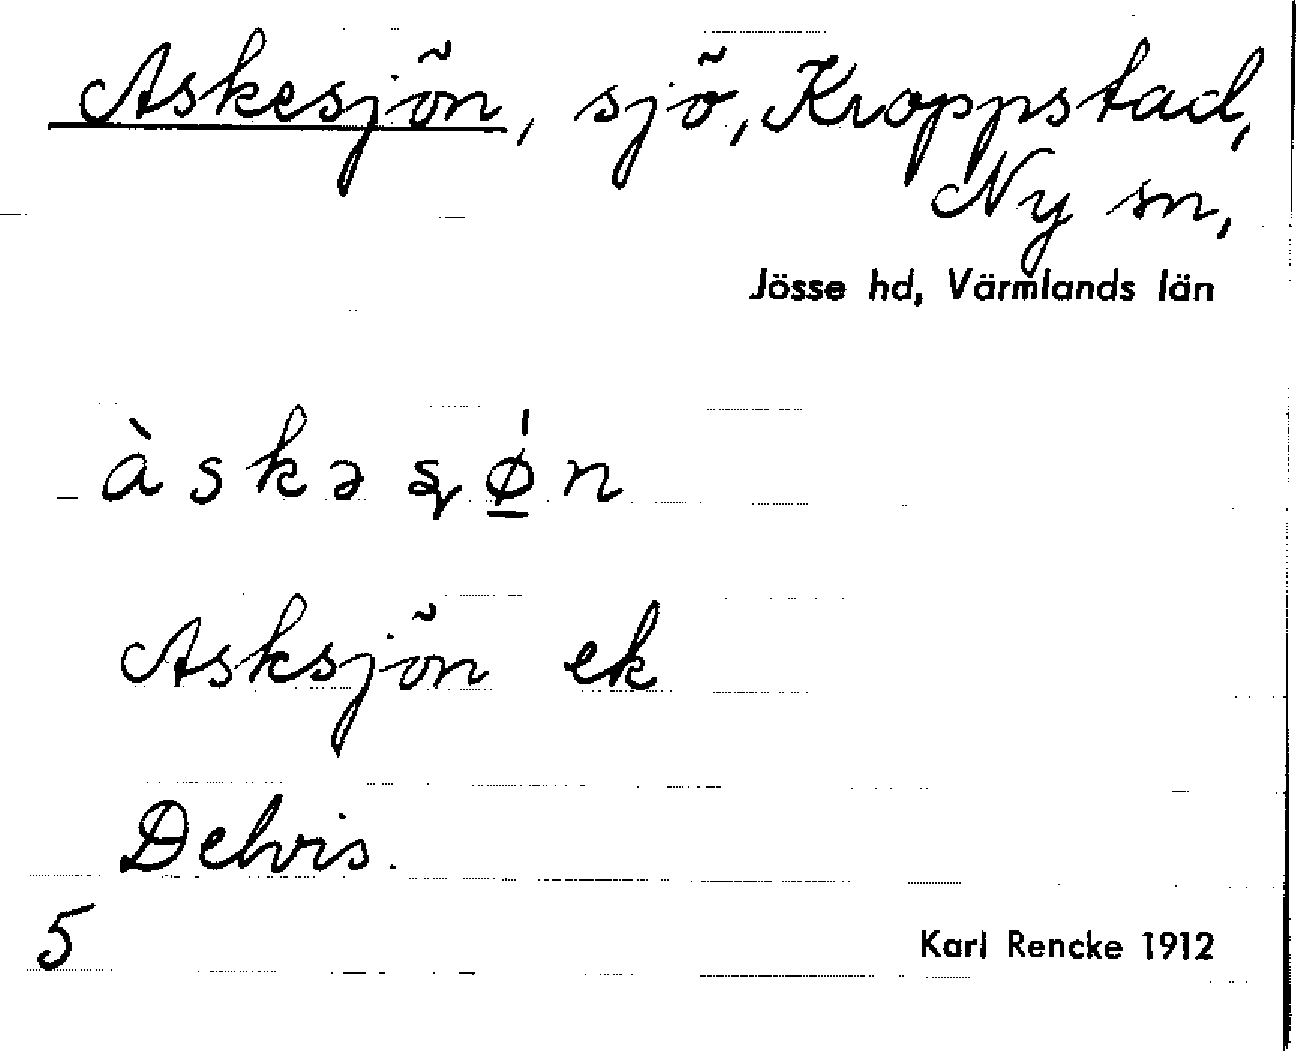 Askesjön, sjö, Kroppstad,
Ny sn,
Jösse hd, Värmlands län
àskə ʂǿ̲n
Asksjön ek
Delvis.
5
Karl Rencke 1912